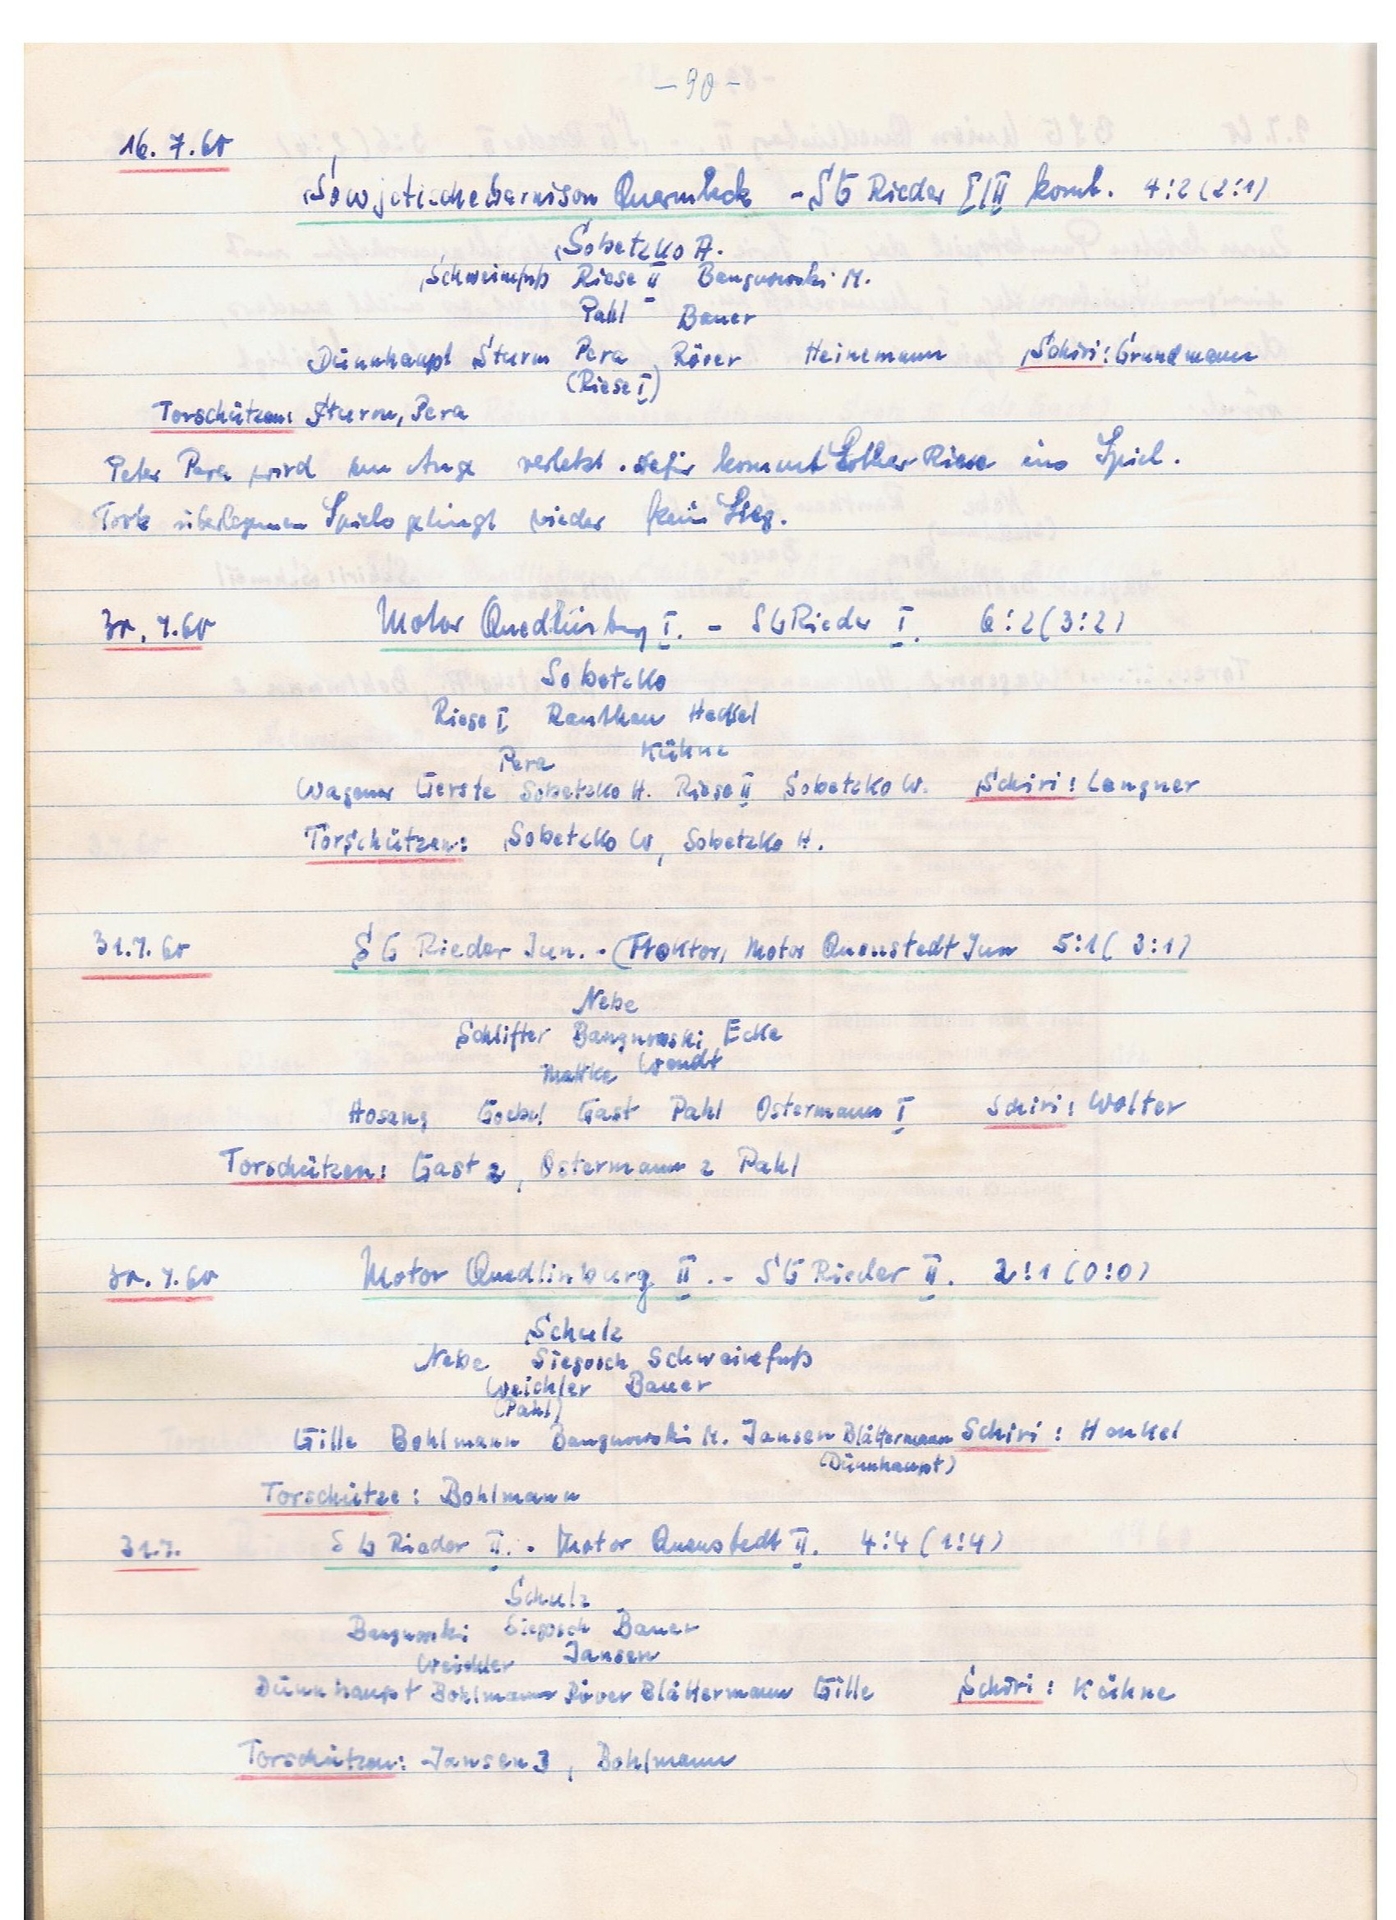 - 90 -
16. 7. 60
Sowjetische Garnison Quarmbeck - SG Rieder I/II komb. 4:2 (2:1)
Sobetzko A.
Schweinefuß Riese II Bangurowski M.
Pahl Bauer
Dünnhaupt Sturm Pera Röver Heinemann Schiri: Grundmann
(Riese I)
Torschützen: Sturm, Pera
Peter Pera wird am Auge verletzt. dafür kommt Lothar Riese ins Spiel.
Trotz überlegenen Spiels gelingt wieder kein Sieg.
30. 7. 60 Motor Quedlinburg I. - SG Rieder I. 6:2 (3:2)
Sobetzko
Riese I Ranthan Heckel
Pera Kühne
Wagener Gerste Sobetzko H. Riese II Sobetzko W. Schiri: Langner
Torschützen: Sobetzko W, Sobetzko H.
31. 7. 60 SG Rieder Jun. - (Traktor, Motor Quenstedt Jun 5:1 (3:1)
Nebe
Schlifter Bangurowski Ecke
Mattke Wendt
Hosang Goebel Gast Pahl Ostermann I Schiri: Wolter
Torschützen: Gast 2, Ostermann 2 Pahl
30. 7. 60 Motor Quedlinburg II. - SG Rieder II. 2:1 (0:0)
Schulz
Nebe Siegosch Schweinefuß
Weichler Bauer
(Pahl)
Gille Bohlmann Bangurowski M. Jansen Blättermann Schiri: Henkel
(Dünnhaupt)
Torschütze: Bohlmann
31. 7. SG Rieder II. - Motor Quenstedt II. 4:4 (1:4)
Schulz
Bangurowski Siegosch Bauer
Weichler Jansen
Dünnhaupt Bohlmann Röver Blättermann Gille Schiri: Kühne
Torschützen: Jansen 3, Bohlmann